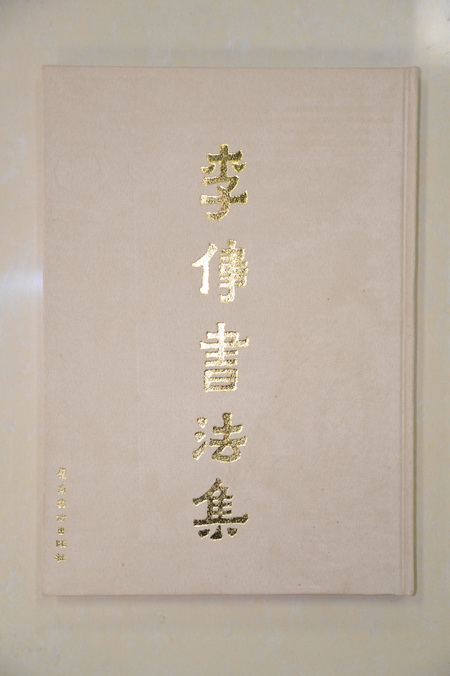 李偉書法集